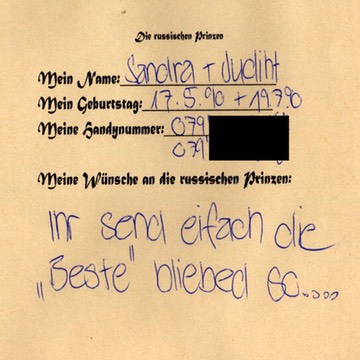 Die russischen Prinzen
Mein Name: Sandra + Judiht
Mein Geburtstag: 17.5.90 + 19.7.90
Meine Handynummer: 079
079
Meine Wünsche an die russischen Prinzen:
Ihr send eifach die
„Beste" bliebed so....